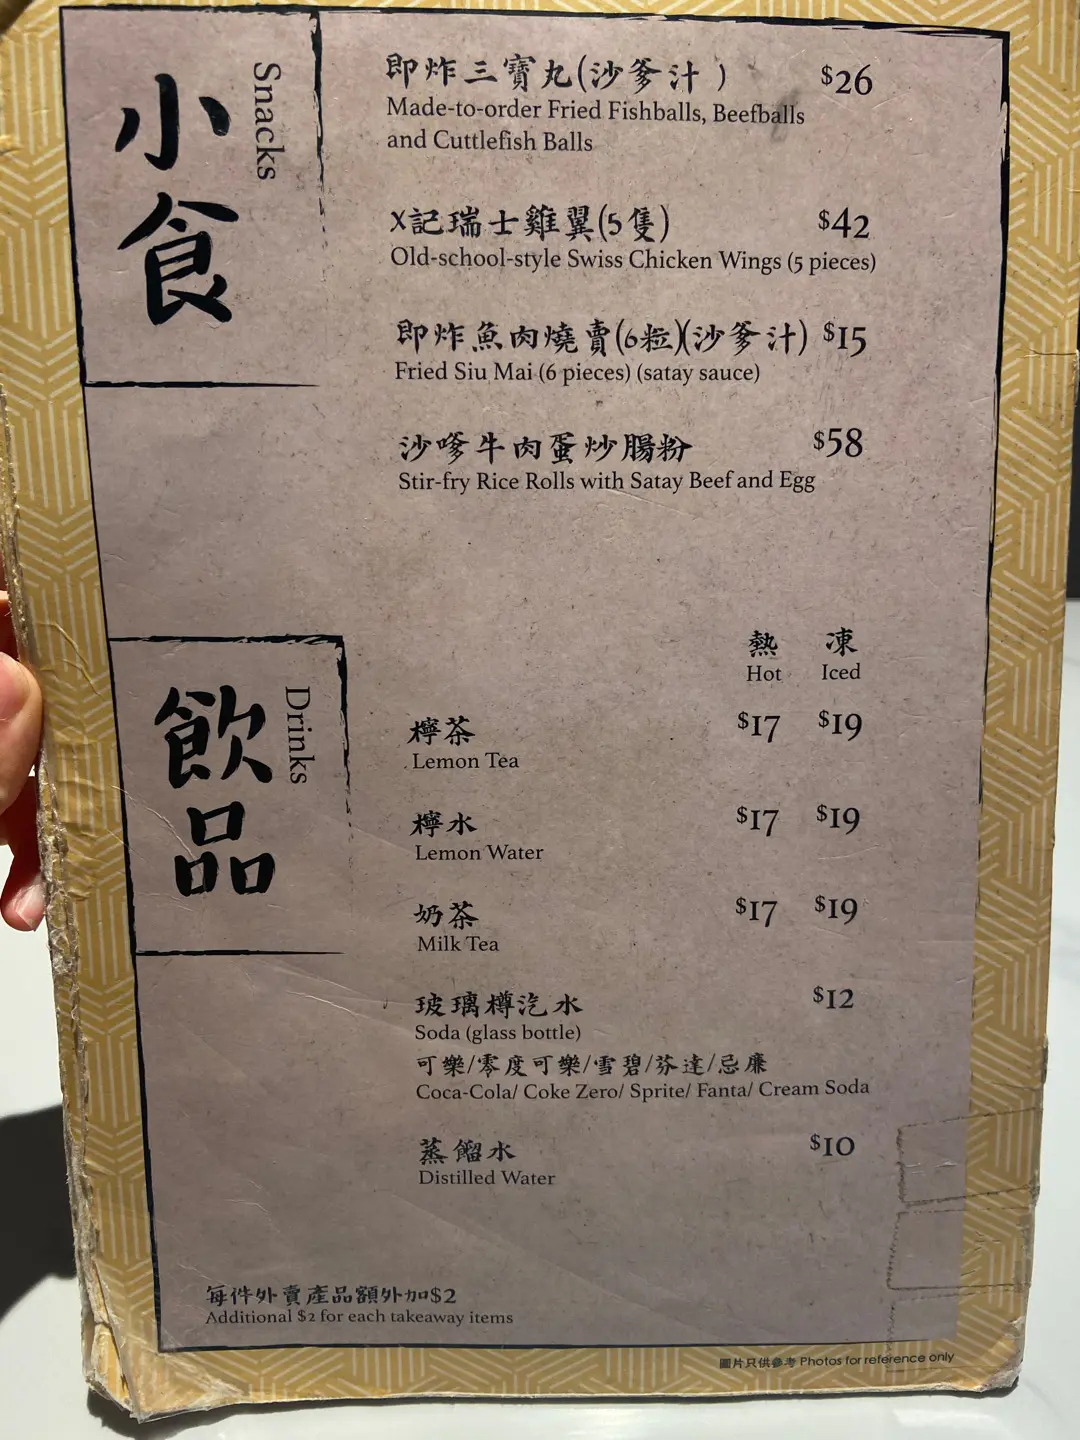 小食
Snacks
即炸三寶丸(沙爹汁) $26
Made-to-order Fried Fishballs, Beefballs
and Cuttlefish Balls
X記瑞士雞翼(5隻) $42
Old-school-style Swiss Chicken Wings (5 pieces)
即炸魚肉燒賣(6粒)(沙爹汁) $15
Fried Siu Mai (6 pieces) (satay sauce)
沙嗲牛肉蛋炒腸粉 $58
Stir-fry Rice Rolls with Satay Beef and Egg
飲品
Drinks
熱 凍
Hot Iced
檸茶 $17 $19
Lemon Tea
檸水 $17 $19
Lemon Water
奶茶 $17 $19
Milk Tea
玻璃樽汽水 $12
Soda (glass bottle)
可樂/零度可樂/雪碧/芬達/忌廉
Coca-Cola/ Coke Zero/ Sprite/ Fanta/ Cream Soda
蒸餾水 $10
Distilled Water
每件外賣產品額外加$2
Additional $2 for each takeaway items
圖片只供參考 Photos for reference only